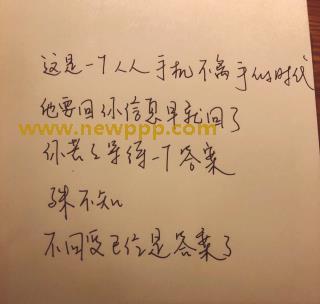 这是一个人人手机不离手的时代
他要回你信息早就回了
www.newppp.com
你苦苦等待一个答案
殊不知
不回复已经是答案了